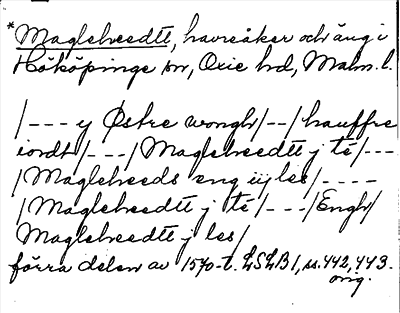 *Maglehveedtt, havreåker och äng i
Hököpinge sn, Oxie hd, Malm. l.
/--- y Østre wongh/--/hauffre
iordt/---/Maglehveedtt j té/---
/Maglehveeds eng iij les/----
/Maglehveedtt j té/---/Engh/
Maglehveedtt j les/
förra delen av 1570-t. LSLB 1, ss. 442, 443.
orig.